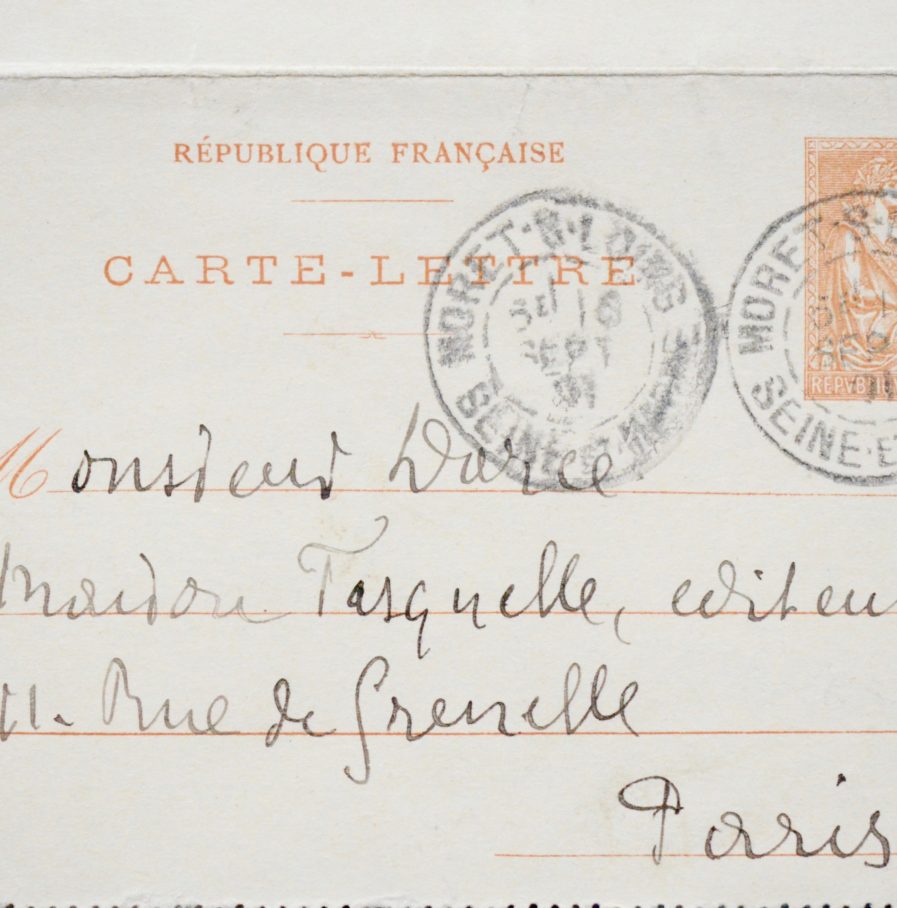 RÉPUBLIQUE FRANÇAISE
CARTE-LETTRE
MORET-S-LOING
SEINE-ET-M
SEPT
MORET-S-
SEINE-ET
REPVB
Monsieur
Maison Fasquelle, editeur
11. Rue de Grenelle
Paris